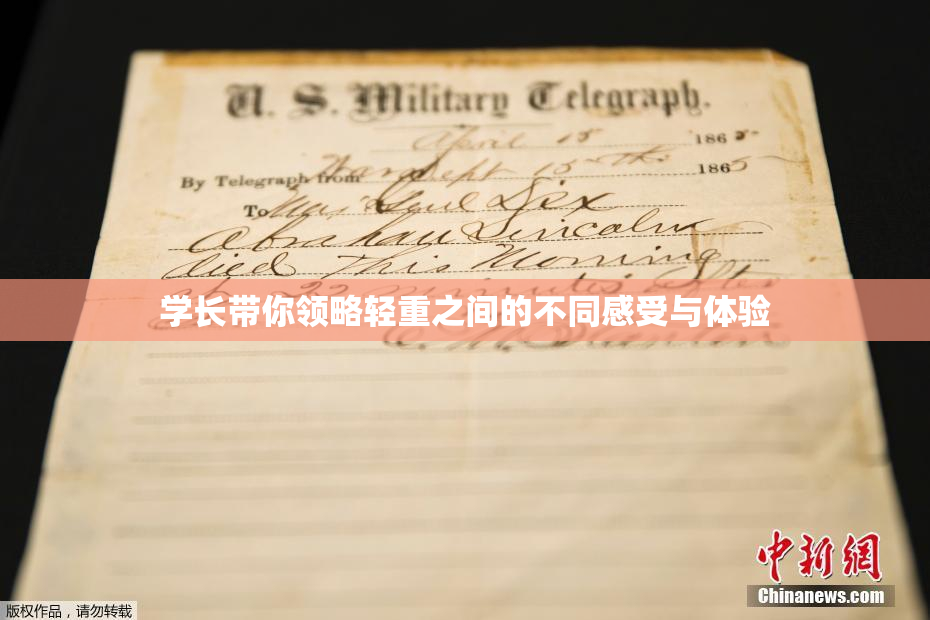 U. S. Military Telegraph.
April 15 1865
By Telegraph from War Dept 15th 1865
To Maj Genl Dix
Abraham Lincoln
died This Morning
at 22 minutes after
学长带你领略轻重之间的不同感受与体验
中新网
Chinanews.com
版权作品，请勿转载